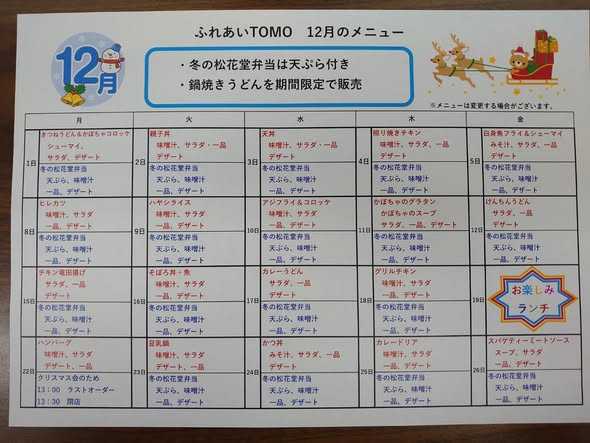 ふれあいTOMO 12月のメニュー
12月
・冬の松花堂弁当は天ぷら付き
・鍋焼きうどんを期間限定で販売
※メニューは変更する場合がございます。
月 火 水 木 金
1日
きつねうどん&かぼちゃコロッケ
シューマイ、
サラダ、デザート
冬の松花堂弁当
天ぷら、味噌汁
一品、デザート
2日
親子丼
味噌汁、サラダ・一品
デザート
冬の松花堂弁当
天ぷら、味噌汁
一品、デザート
3日
天丼
味噌汁、サラダ・一品
デザート
冬の松花堂弁当
天ぷら、味噌汁
一品、デザート
4日
照り焼きチキン
味噌汁、サラダ、一品
デザート
冬の松花堂弁当
天ぷら、味噌汁
一品、デザート
5日
白身魚フライ&シューマイ
みそ汁、サラダ、一品
デザート
冬の松花堂弁当
天ぷら、味噌汁
一品、デザート
8日
ヒレカツ
味噌汁、サラダ
一品、デザート
冬の松花堂弁当
天ぷら、味噌汁
一品、デザート
9日
ハヤシライス
味噌汁、サラダ
一品、デザート
冬の松花堂弁当
天ぷら、味噌汁
一品、デザート
10日
アジフライ&コロッケ
味噌汁、サラダ
一品、デザート
冬の松花堂弁当
天ぷら、味噌汁
一品、デザート
11日
かぼちゃのグラタン
かぼちゃのスープ
サラダ、一品、デザート
冬の松花堂弁当
天ぷら、味噌汁
一品、デザート
12日
けんちんうどん
サラダ
一品、デザート
冬の松花堂弁当
天ぷら、味噌汁
一品、デザート
15日
チキン竜田揚げ
サラダ、一品
デザート
冬の松花堂弁当
天ぷら、味噌汁
一品、デザート
16日
そぼろ丼・魚
味噌汁、サラダ
一品、デザート
冬の松花堂弁当
天ぷら、味噌汁
一品、デザート
17日
カレーうどん
サラダ、一品
デザート
冬の松花堂弁当
天ぷら、味噌汁
一品、デザート
18日
グリルチキン
味噌汁、サラダ
一品、デザート
冬の松花堂弁当
天ぷら、味噌汁
一品、デザート
19日
お楽しみ
ランチ
22日
ハンバーグ
味噌汁、サラダ
一品、デザート
クリスマス会のため
13:00 ラストオーダー
13:30 閉店
23日
豆乳鍋
味噌汁、サラダ
デザート、一品
冬の松花堂弁当
天ぷら、味噌汁
一品、デザート
24日
かつ丼
みそ汁、サラダ、一品
デザート
冬の松花堂弁当
天ぷら、味噌汁
一品、デザート
25日
カレードリア
味噌汁、サラダ
一品、デザート
冬の松花堂弁当
天ぷら、味噌汁
一品、デザート
26日
スパゲティーミートソース
スープ、サラダ
一品、デザート
冬の松花堂弁当
天ぷら、味噌汁
一品、デザート